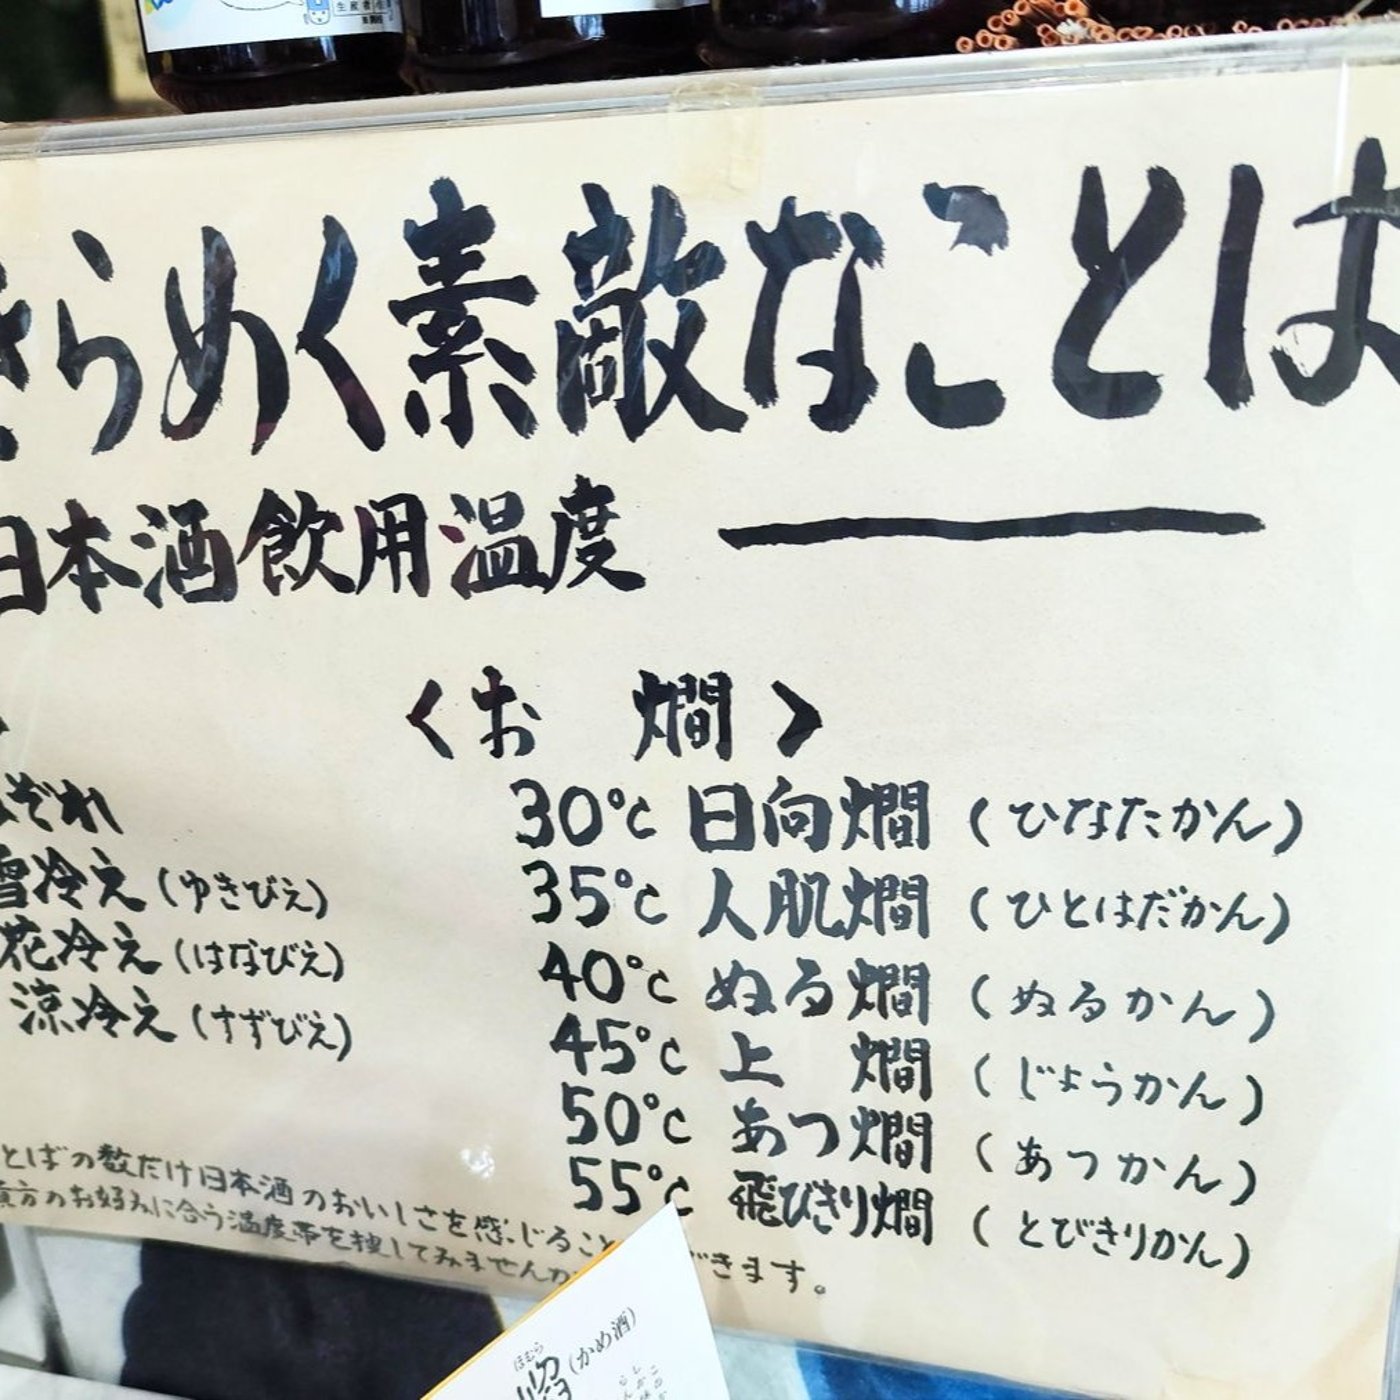 きらめく素敵なことば
日本酒飲用温度
<お 燗>
みぞれ
雪冷え (ゆきびえ)
花冷え (はなびえ)
涼冷え (すずびえ)
30℃ 日向燗 (ひなたかん)
35℃ 人肌燗 (ひとはだかん)
40℃ ぬる燗 (ぬるかん)
45℃ 上 燗 (じょうかん)
50℃ あつ燗 (あつかん)
55℃ 飛びきり燗 (とびきりかん)
とばの数だけ日本酒のおいしさを感じるこ できます。
貴方のお好みに合う温度帯を捜してみませんか
ほむら
(かめ酒)